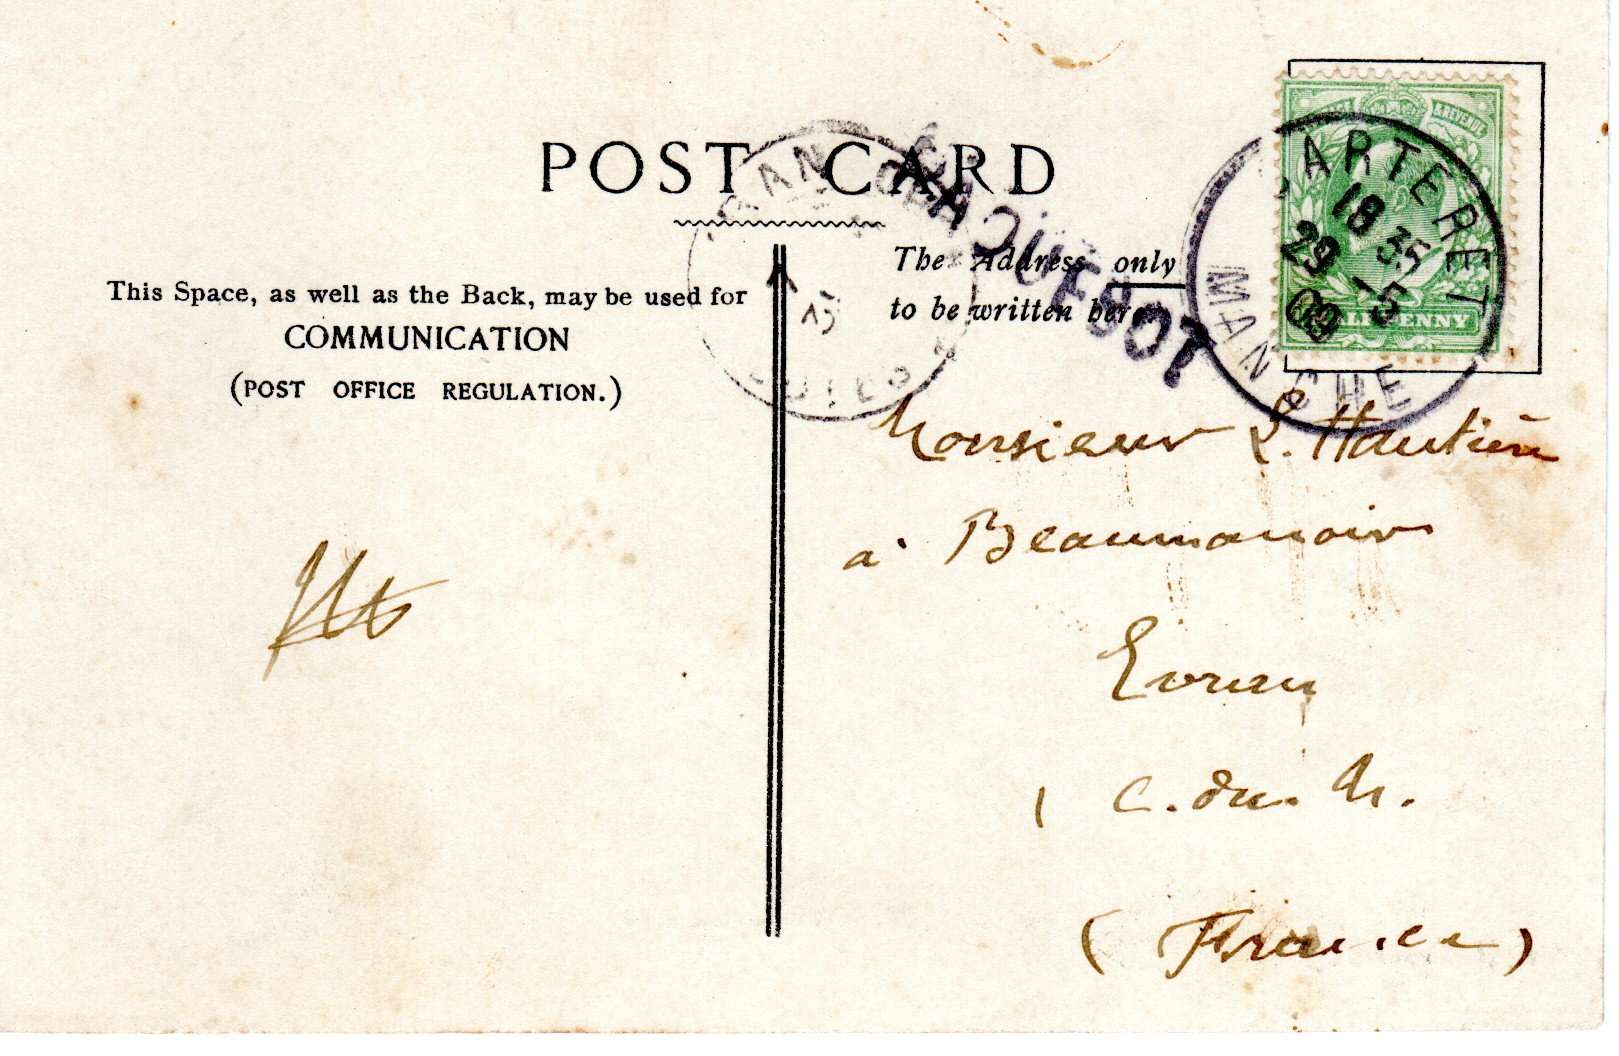 POST CARD
This Space, as well as the Back, may be used for
COMMUNICATION
(POST OFFICE REGULATION.)
The Address only
to be written here
PAQUEBOT
& REVENUE
HALFPENNY
CARTERET
18 35
29 -5
09
MANCHE
Monsieur L. Hautière
à Beaumanoir
Evran
( C. du. N.
(France)